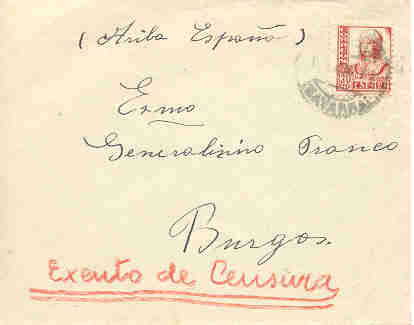 (Ariba España)
Exmo
Generalisimo Franco
Burgos.
Exento de Censura